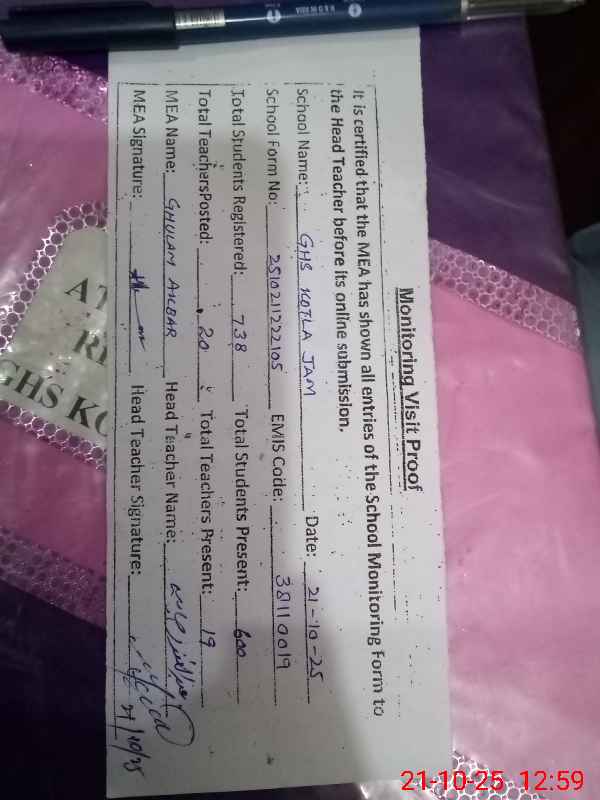 Monitoring Visit Proof
It is certified that the MEA has shown all entries of the School Monitoring Form to
the Head Teacher before its online submission.
School Name: GHS KOTLA JAM Date: 21-10-25
School Form No: 2510211222105 EMIS Code: 38110019
Total Students Registered: 738 Total Students Present: 600
Total TeachersPosted: 20 Total Teachers Present: 19
MEA Name: GHULAM AKBAR Head Teacher Name:
MEA Signature: Head Teacher Signature:
21/10/25
GHS KO
21-10-25 12:59